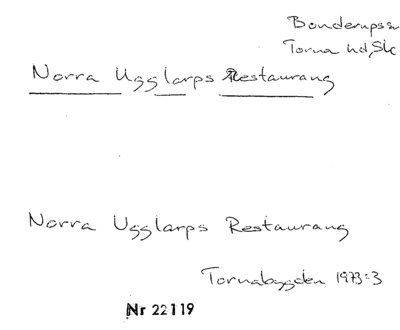 Bonderups sn
Torna hd, Sk
Norra Ugglarps Restaurang
Norra Ugglarps Restaurang
Tornabygden 1973:3
Nr 22119